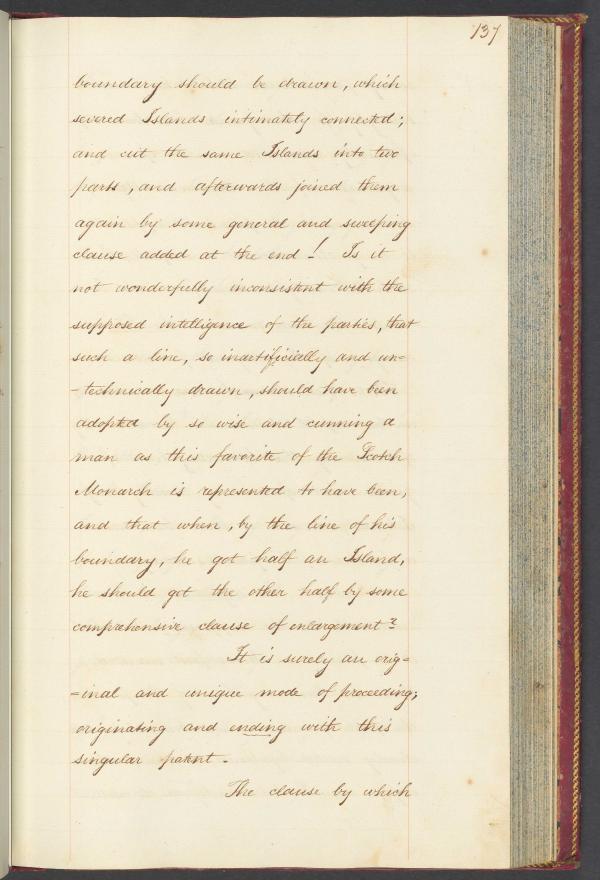 137
boundary should be drawn, which
severed Islands intimately connected;
and cut the same Islands into two
parts, and afterwards joined them
again by some general and sweeping
clause added at the end! Is it
not wonderfully inconsistent with the
supposed intelligence of the parties, that
such a line, so inartificially and un-
-technically drawn, should have been
adopted by so wise and cunning a
man as this favorite of the Scotch
Monarch is represented to have been,
and that when, by the line of his
boundary, he got half an Island,
he should get the other half by some
comprehensive clause of enlargement?
It is surely an orig=
=inal and unique mode of proceeding;
originating and ending with this
singular patent.
The clause by which